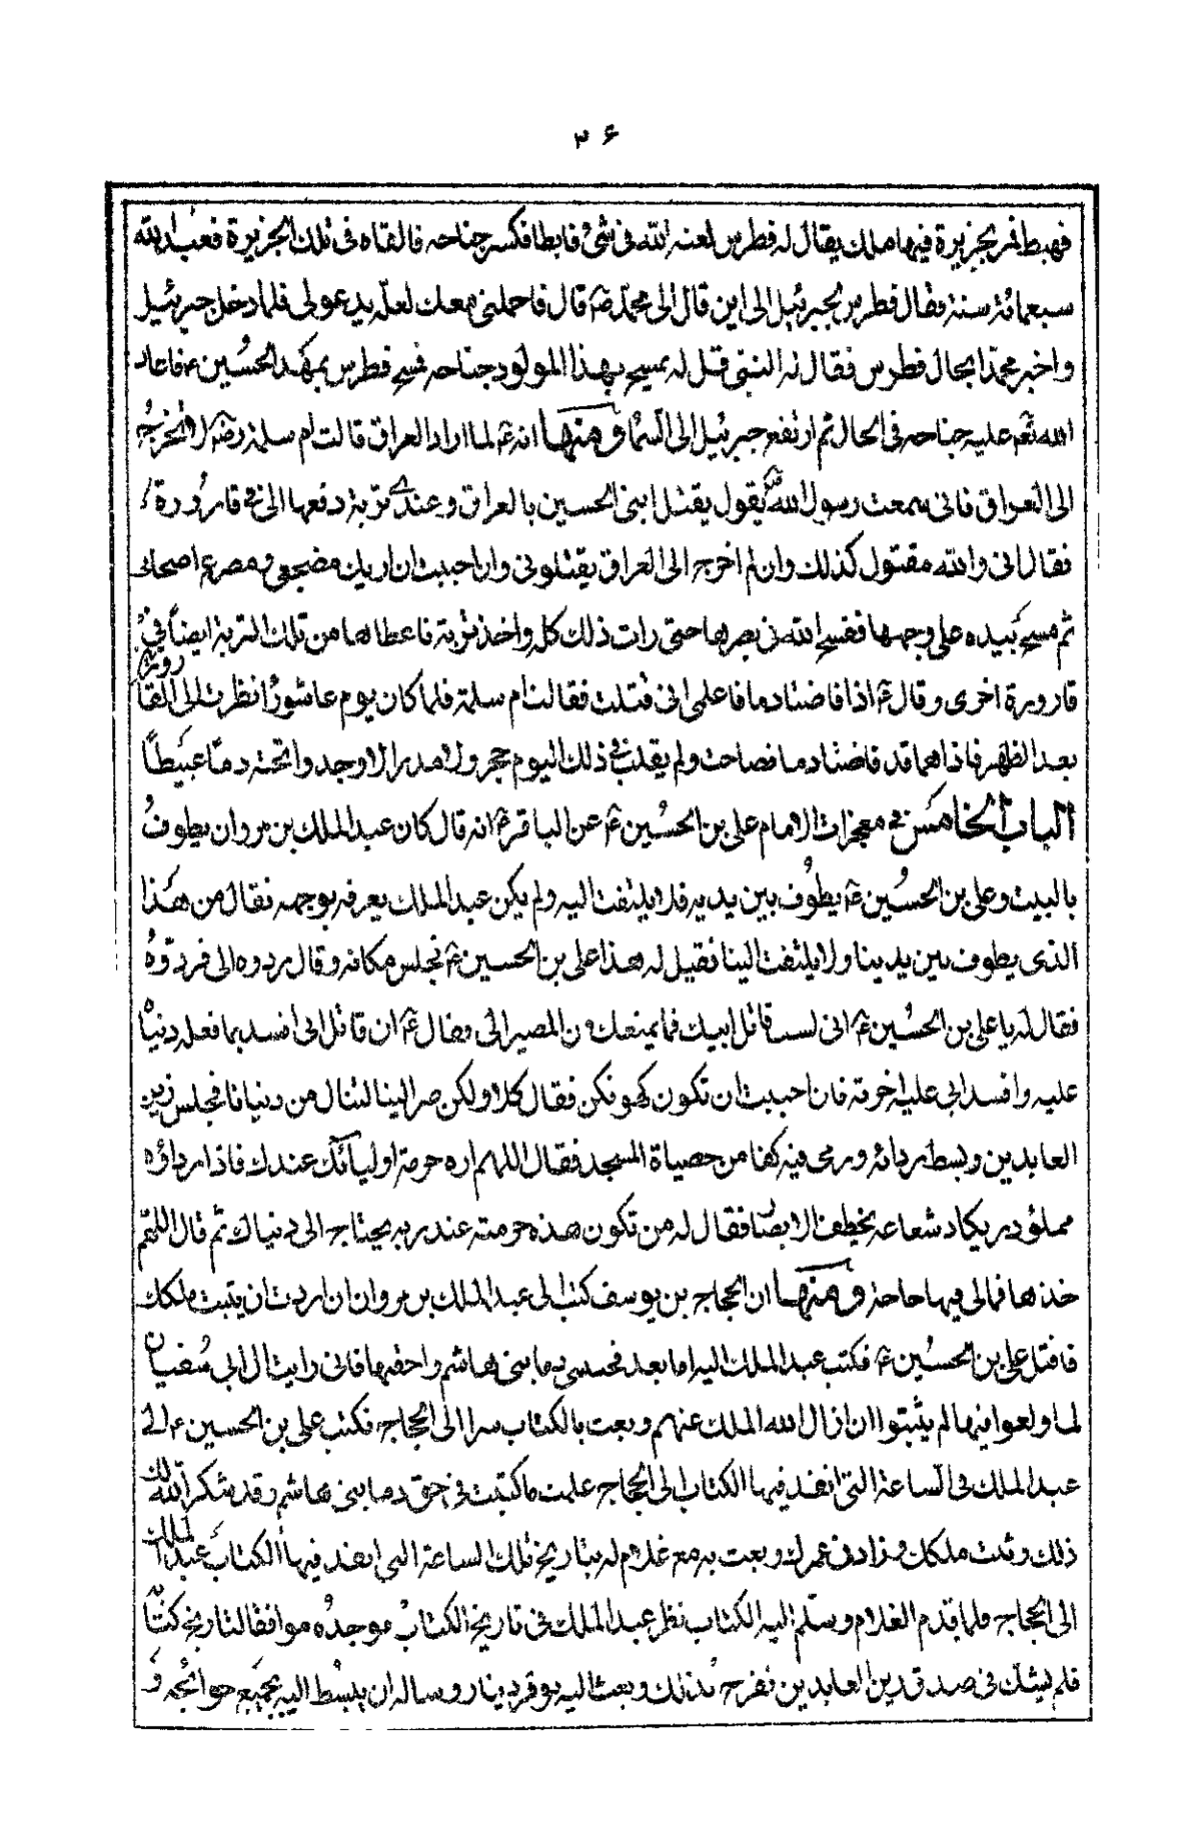 ٣۶
فهبط فمر بجزيرة فيها ملك يقال له فطرس لعنه الله فى شئ فابطا فكسر جناحه فالقاه فى تلك الجزيرة فعبد الله
سبعمائة سنة فقال فطرس لجبرئيل الى اين قال الى محمد ص قال فاحملنى معك لعله يدعو لى فلما دخل جبرئيل
واخبر محمدا بحال فطرس فقال له النبى قل له يمسح بهذا المولود جناحه فمسح فطرس بمهد الحسين ع فاعاد
الله تعم عليه جناحه فى الحال ثم ارتفع جبرئيل الى السما ومنها انه ع لما اراد العراق قالت ام سلمة رضه لا تخرج
الى العراق فانى سمعت رسول الله يقول يقتل ابنى الحسين بالعراق وعندى تربة دفعها الى فى قارورة
فقال انى والله مقتول كذلك وان لم اخرج الى العراق يقتلونى وان احببت ان اريك مضجعى ومصرع اصحابى
ثم مسح بيده على وجهها ففسح الله فى بصرها حتى رات ذلك كله واخذ تربة فاعطاها من تلك التربة ايضاً فى
قارورة اخرى وقال ع اذا فاضتا دما فاعلمى انى قتلت فقالت ام سلمة فلما كان يوم عاشورا نظرت الى القارورتين
بعد الظهر فاذا هما قد فاضتا دما فصاحت ولم يقلب فى ذلك اليوم حجر ولا مدر الا وجد واتحته دمًا عبيطاً
الباب الخامس فى معجزات الامام على بن الحسين ع عن الباقر ع انه قال كان عبد الملك بن مروان يطوف
بالبيت وعلى بن الحسين ع يطوف بين يديه فلا يلتفت اليه ولم يكن عبد الملك يعرفه بوجهه فقال من هذا
الذى يطوف بين يدينا ولا يلتفت الينا فقيل له هذا على بن الحسين ع فجلس مكانه وقال ردوه الى فردوه
فقال له يا على بن الحسين ع انى لست قاتل ابيك فما يمنعك من المصير الى وفقال ع ان قاتل ابى افسد بما فعله دنياه
عليه وافسد ابى عليه اخرته فان احببت ان تكون كهو فكن فقال كلا ولكن صر الينا لتنال من دنيانا فجلس زين
العابدين وبسط ردائه ورمى فيه كفا من حصياة المسجد فقال اللهم اره حرمة اوليائك عندك فاذا رداؤه
مملؤ در يكاد شعاعه يخطف الابصار فقال له من تكون هذه حرمته عند ربه يحتاج الى دنياك ثم قال اللهم
خذها فمالى فيها حاجة ومنها ان الحجاج بن يوسف كتب الى عبد الملك بن مروان ان اردت ان يثبت ملكك
فاقتل على بن الحسين ع فكتب عبد الملك اليه اما بعد فحسبى دما بنى هاشم واحقنها فانى رايت ال ابى سفيان
لما ولعوا فيها لم يثبتوا ان ازال الله الملك عنهم وبعث بالكتاب سرا الى الحجاج فكتب على بن الحسين ع الى
عبد الملك فى الساعة التى انفذ فيها الكتاب الى الحجاج علمت ما كتبت فى حق دما بنى هاشم وقد شكر الله لك
ذلك وثبت ملكك وزاد فى عمرك وبعث به مع غلام له بتاريخ تلك الساعة التى انفذ فيها الكتاب عبد الملك
الى الحجاج فلما قدم الغلام وسلم اليه الكتاب نظر عبد الملك فى تاريخ الكتاب فوجده موافقا لتاريخ كتابه
فلم يشك فى صدق زين العابدين ففرح بذلك وبعث اليه بوقر دينار وساله ان يبسط اليه بجميع حوائجه و